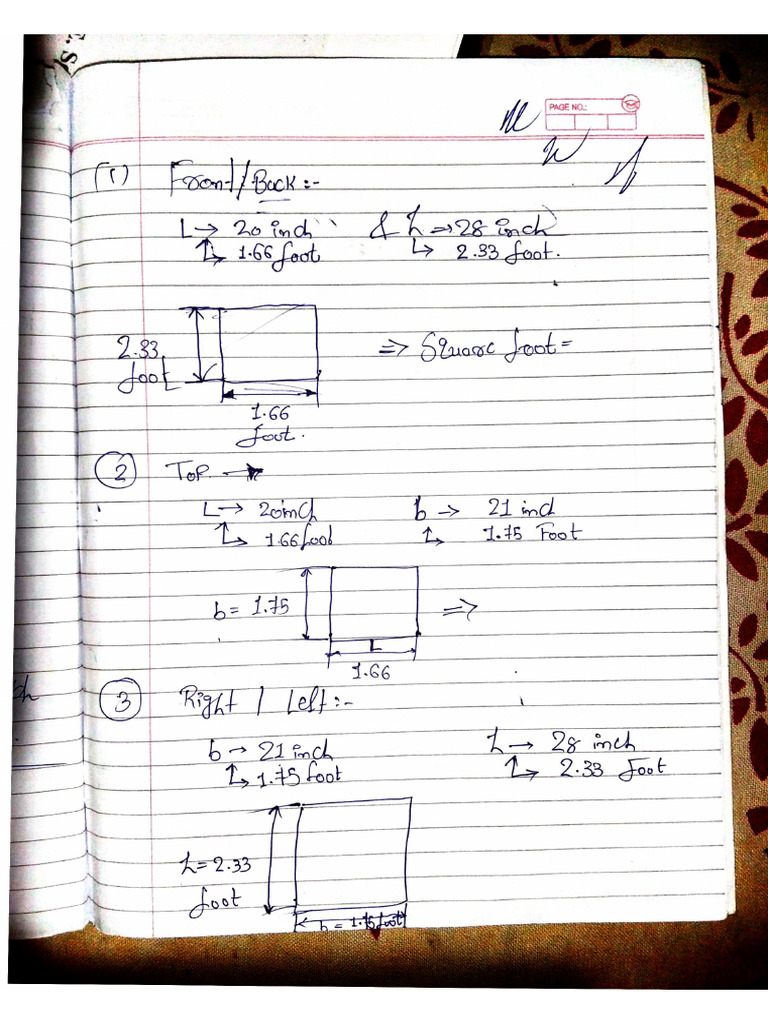 PAGE NO.:
(1) Front/Back:-
L → 20 inch & h → 28 inch
↳ 1.66 foot ↳ 2.33 foot.
2.33 foot
⇒ Square foot =
1.66 foot.
(2) TOP →
L → 20 inch b → 21 inch
↳ 1.66 foot ↳ 1.75 Foot
b = 1.75 ⇒
L
1.66
(3) Right / Left:-
b → 21 inch h → 28 inch
↳ 1.75 foot ↳ 2.33 foot
h = 2.33
foot
b = 1.75 foot